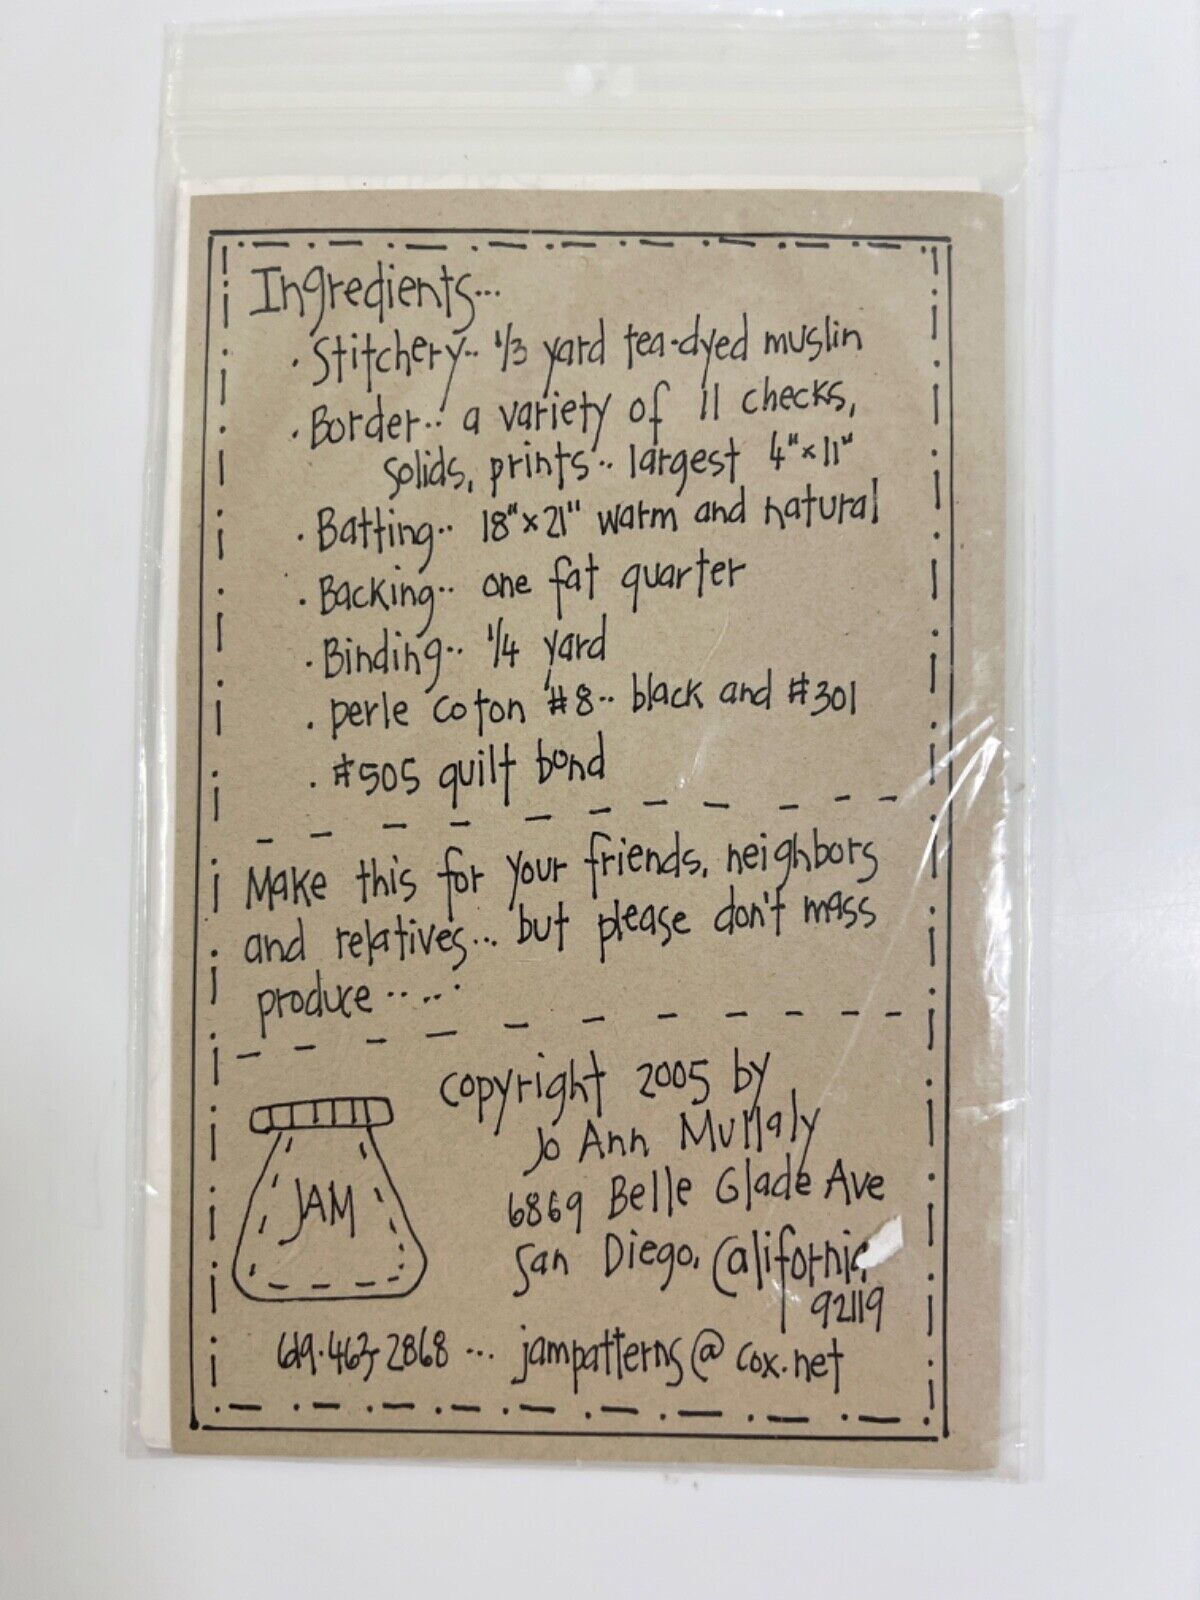 Ingredients...
. Stitchery.. 1/3 yard tea-dyed muslin
. Border.. a variety of 11 checks,
solids, prints.. largest 4"x11"
. Batting.. 18"x21" warm and natural
. Backing.. one fat quarter
. Binding.. 1/4 yard
. perle coton #8.. black and #301
. #505 quilt bond
Make this for your friends, neighbors
and relatives... but please don't mass
produce .. .. .
copyright 2005 by
Jo Ann Mullaly
6869 Belle Glade Ave
San Diego, California
92119
JAM
619.463-2868 ... jampatterns@cox.net